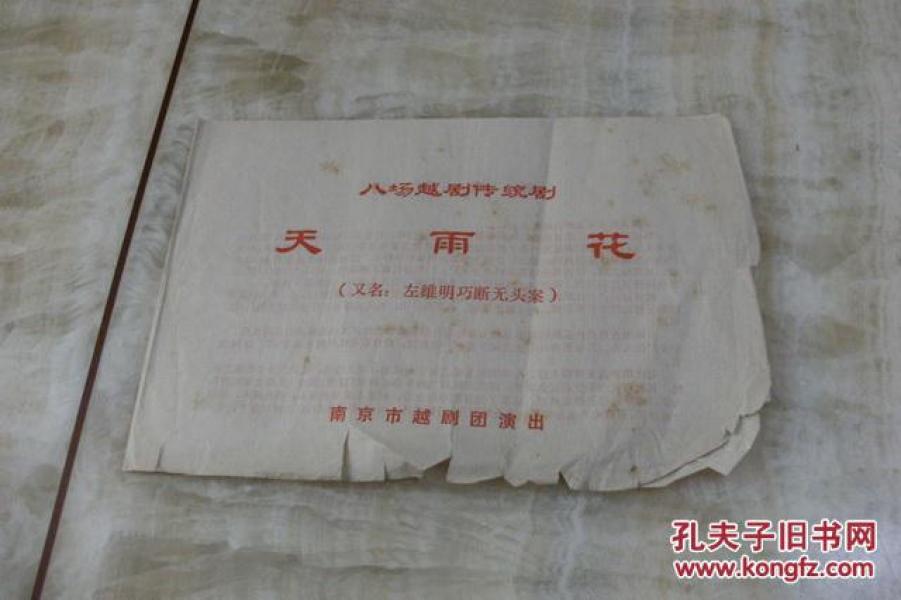 八场越剧传统剧
天雨花
（又名：左维明巧断无头案）
南京市越剧团演出
孔夫子旧书网
www.kongfz.com